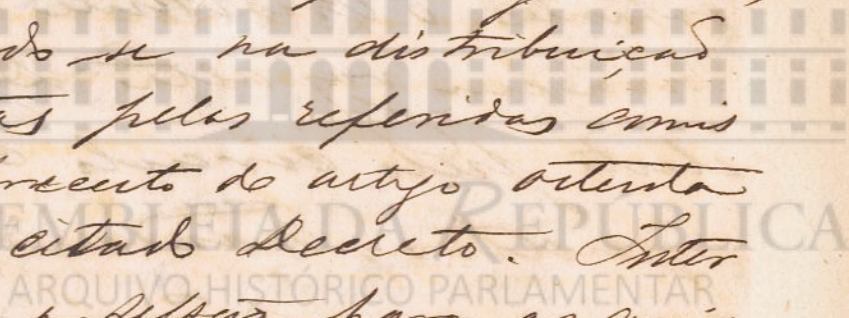 do se na distribuição
as pelas referidas comis
preceito do artigo oitenta
citado Decreto. Inter
ASSEMBLEIA DA REPÚBLICA
ARQUIVO HISTÓRICO PARLAMENTAR
para